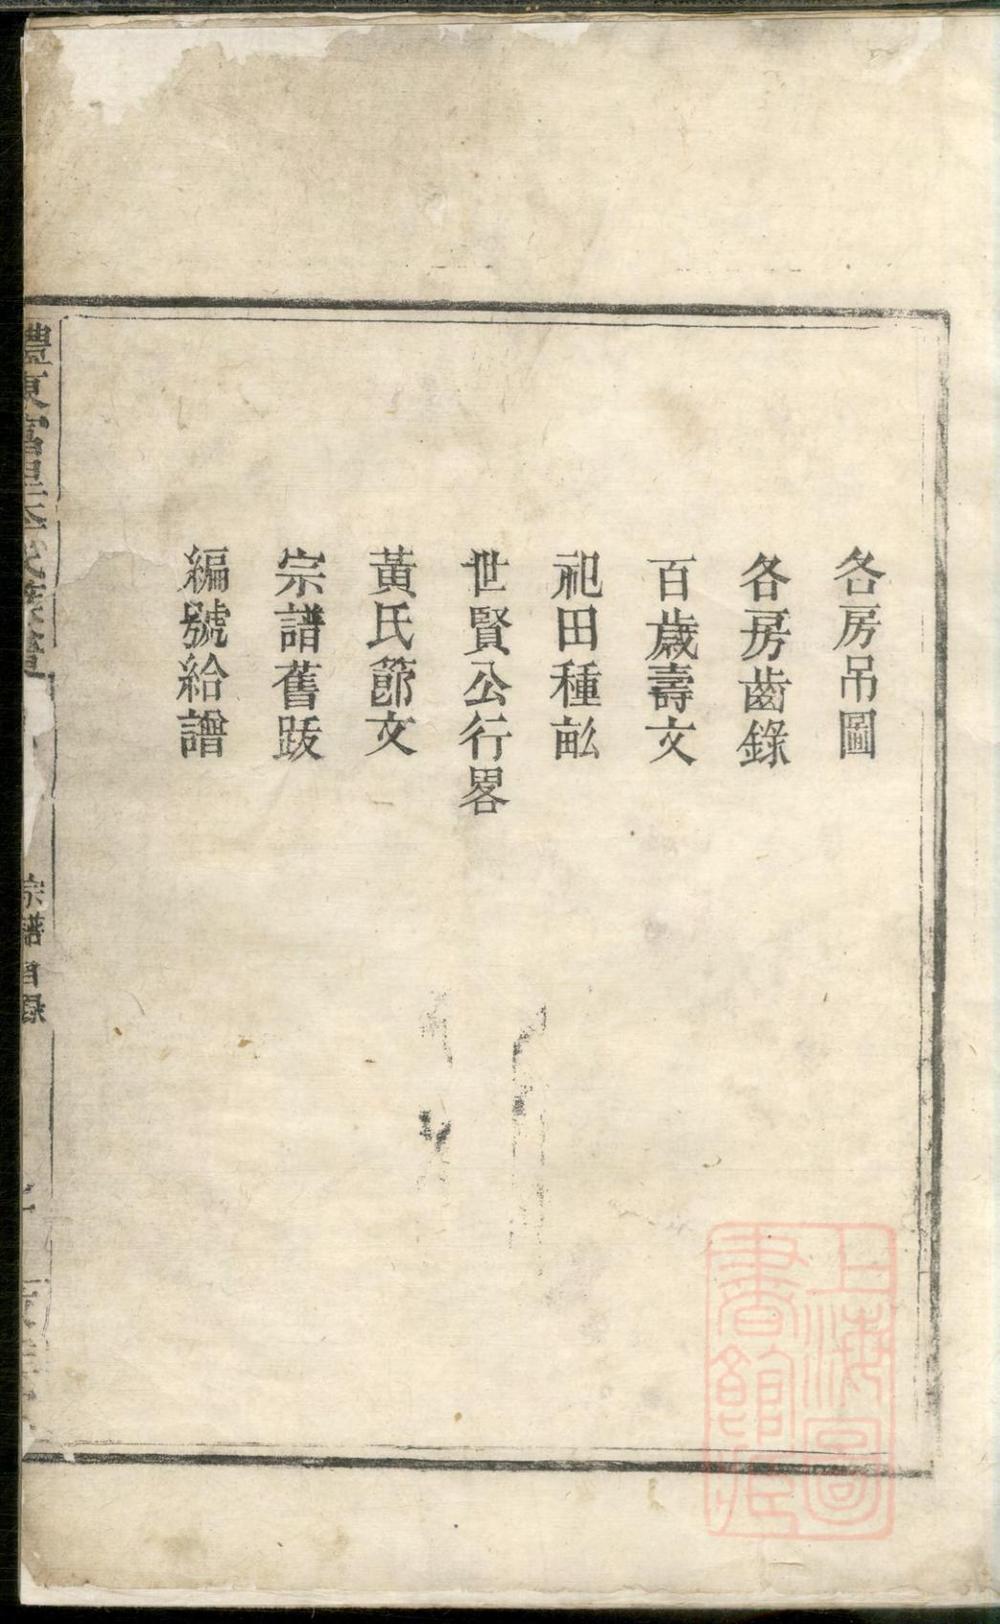 各房吊圖
各房齒錄
百歲壽文
祀田種畝
世賢公行畧
黃氏節文
宗譜舊跋
編號給譜
宗譜目錄
上海圖
書館藏